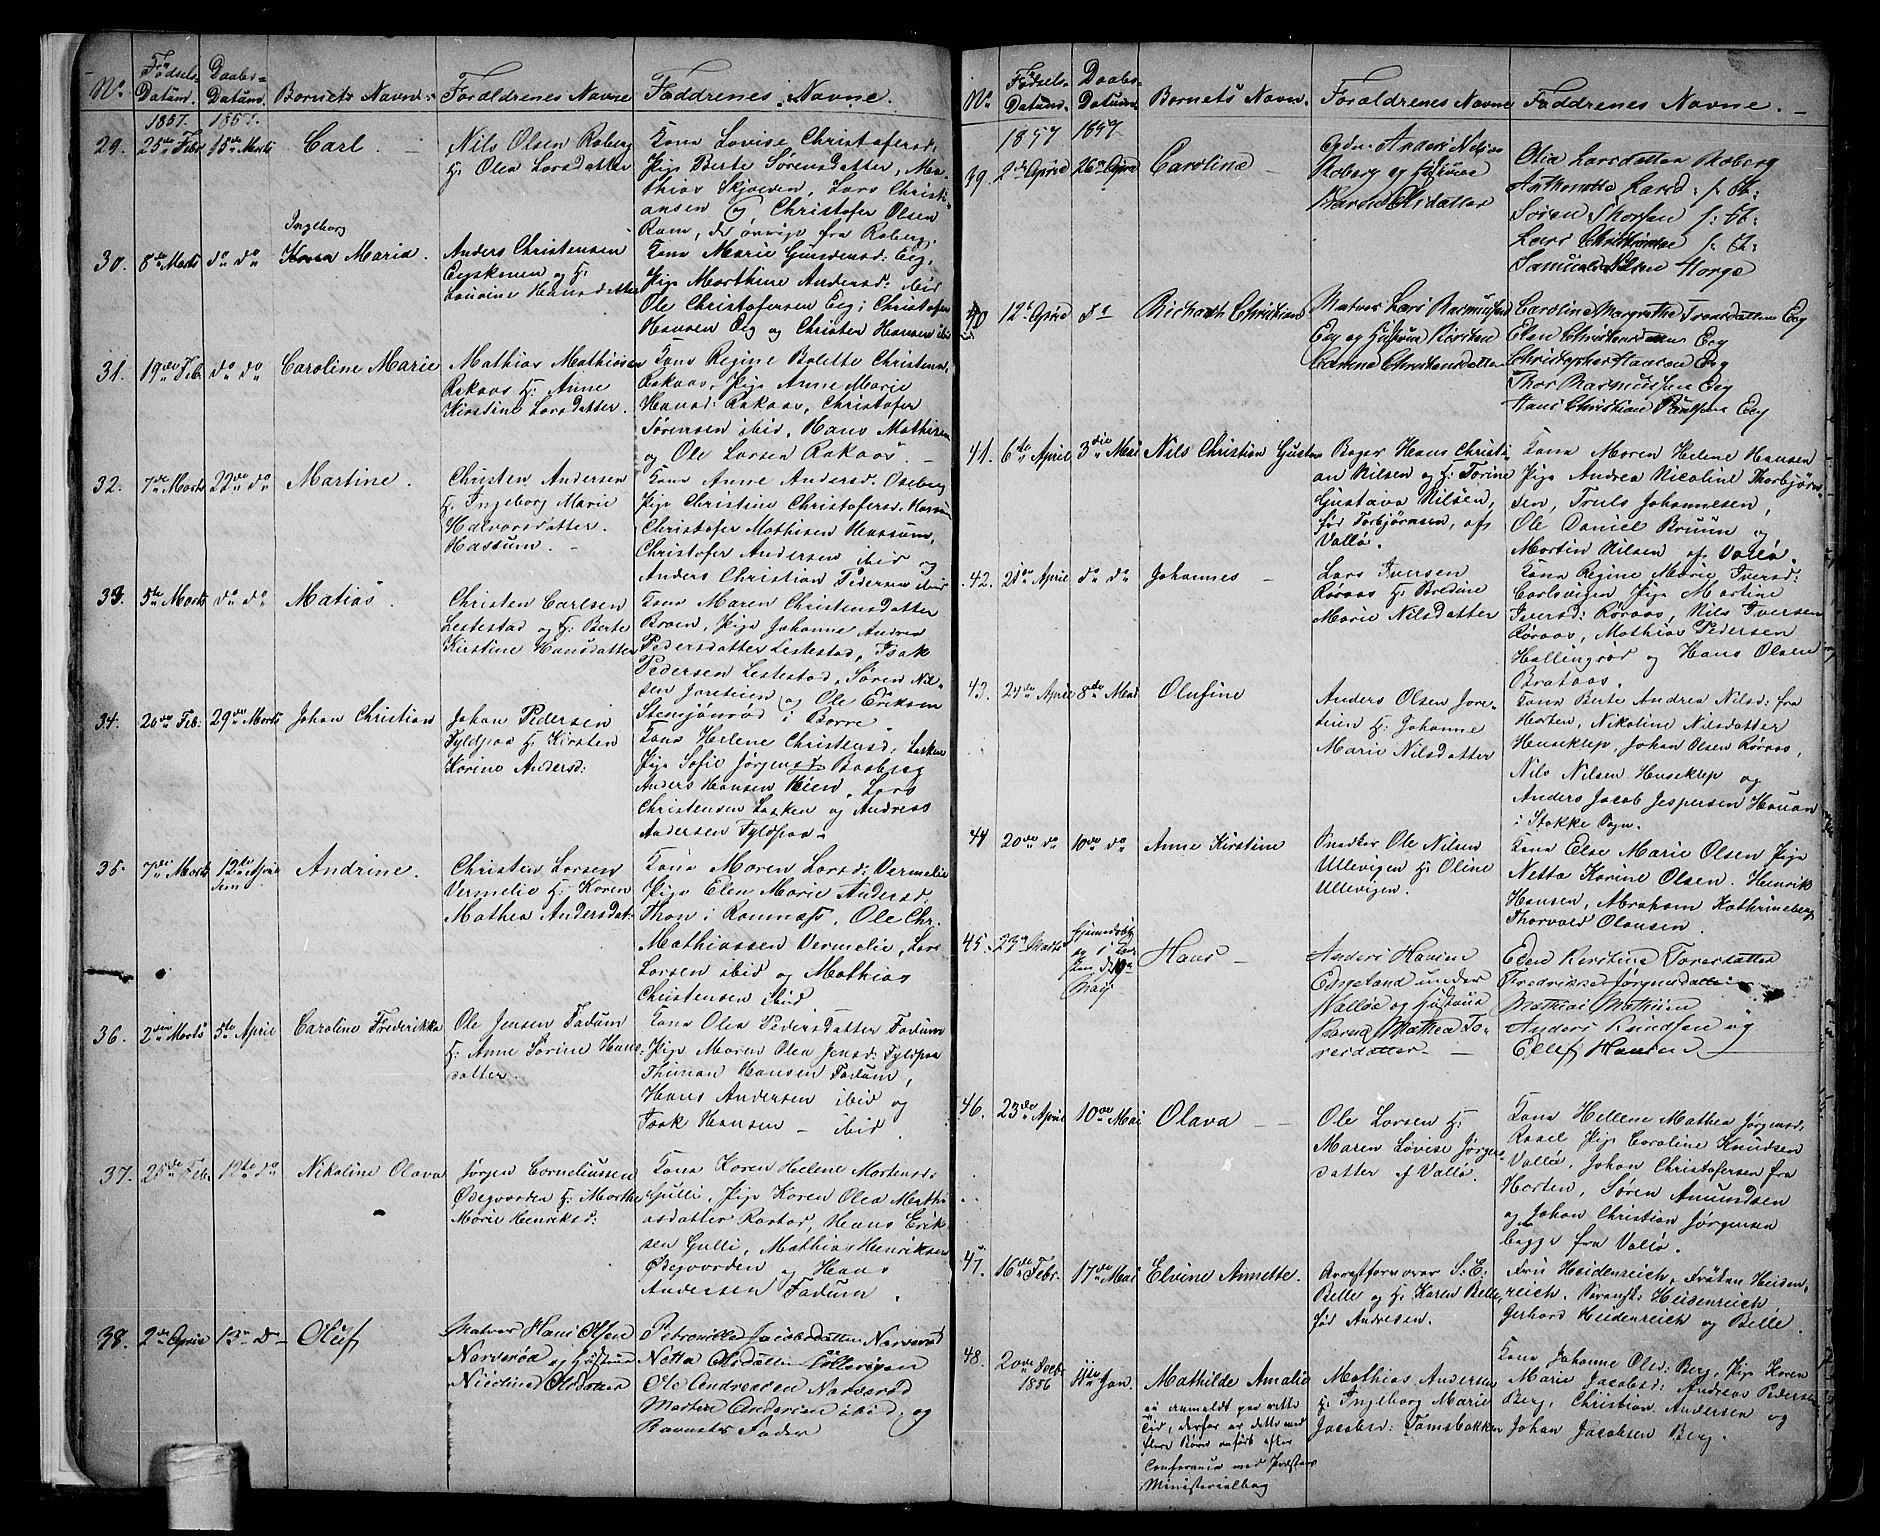 No. Fødsels- Datum. Daabs- Datum. Barnets Navn. Forældrenes Navne Faddrenes Navne.
1857. 1857.
29. 25de Febr 15de Marts Carl. Nils Olsen Roberg
H. Olea Larsdatter
Kona Lovise Christofersd:
Pige Berte Sørensdatter, Ma-
thias Skjelden, Lars Christi-
ansen og Christofer Olsen
Ram, de øvrige fra Roberg.
30. 8de Marts do do Ingeborg
Karen Maria Anders Christensen
Eegskenen og H.
Lovoine Hansdatter
Kona Marie Gundersd: Eeg,
Pige Marthine Andersd: ibid
Ole Christofersen Eeg, Christofer
Hansen Eeg og Christen Hansen ibid
31. 19de Feb. do do Caroline Marie Mathias Mathiasen
Rakaas H. Anne
Kirstine Larsdatter.
Kona Regine Bolette Christens.
Rakaas, Pige Anne Marie
Hansd: Rakaas, Christofer
Sørensen ibid, Hans Mathisen
og Ole Larsen Rakaas.
32. 7de Marts 22de do Martine. Christen Andersen
H. Ingeborg Marie
Halvorsdatter.
Hassum.
Kona Anne Andersd: Oseberg
Pige Christine Christofersd: Hassum
Christofer Mathisen Hassum,
Christofer Andersen ibid og
Anders Christian Pedersen ibid
33. 5te Marts do do Matias. Christen Carlsen
Lestestad og H. Berte
Kirstine Hansdatter
Kona Maren Christensdatter
Broen, Pige Johanne Andrea
Pedersdatter Lestestad, Isak
Pedersen Lestestad, Søren Nil-
sen Jareteien og Ole Eriksen
Stensjønrød i Borre
34. 26de Feb: 29de Marts Johan Christian Johan Pedersen
Fyldpaa H. Kirsten
Karine Andersd:
Kona Helene Christensd, Lasken
Pige Sofie Jørgensd Basberg
Anders Hansen Hien, Lars
Christensen Lasken og Andreas
Andersen Fyldpaa.
35. 7de Marts 12te April
hjem Andrine. Christen Larsen
Vermelie H. Karen
Mathea Andersdat-
Kona Maren Larsd: Vermelie
Pige Elen Marie Andersd:
Thon i Ramnæs, Ole Chr.
Mathiassen Vermelie, Lars
Larsen ibid og Mathias
Christensen ibid
36. 2den Marts 5te April Caroline Frederikke Ole Jensen Fadum
H. Anne Sørine Hans-
datter.
Kona Olea Pedersdatter Fadum
Pige Maren Olea Jensd: Fyldpaa
Thiman Hansen Fadum,
Hans Andersen ibid og
Isak Hansen — ibid.
37. 25de Feb. 12te do Nikoline Olava Jørgen Corneliussen
Ødegaarden H. Marthe
Marie Henriksd:
Kona Karen Helene Mortensd:
Gulli, Pige Karen Olea Math-
iasdatter Rastad, Hans Erik-
sen Gulli, Mathias Henriksen
Ødegaarden og Hans
Andersen Fadum.
38. 2de April 13de Do Oluf Matros Hans Olsen
Narverød og Hustrue
Nicoline Olsdatter
Petronille Jacobsdatter Narverød
Netta Olsdatter Ullevigen
Ole Andreasen Narverød
Martin Andersen ibid, og
Barnets Fader
No. Fødsels Datum. Daabs- Datum. Barnets Navn. Forældrenes Navne Faddrenes Navne.
1857 1857
39 2de April 26de April Caroline Anders Nilsen
Roberg og Hustrue
Karen Olsdatter
Olia Larsdatter Roberg
Anthonette Larsd: s: st:
Søren Thorsen s: st:
Lars Christensen s: st:
Samuel Nilsen Horge
40 12te April do Richardt Christian Matros Lars Rasmussen
Eeg og Hustrue Kirsten
Christensdatter
Caroline Margrethe Transdatter Eeg
Elen Eeg
Christopher Hansen Eeg
Thor Rasmussen Eeg
Hans Christian Paulsen Eeg
41. 6te April 3die Mai Nils Christian Gustav Bager Hans Christi-
an Nilsen og H: Torine
Gustava Nilsen,
fød Torbjørnsen, af
Valløe.
Kona Maren Helene Hansen
Pige Andrea Nicoline Thorbjørn-
sen, Truls Johannesen,
Ole Daniel Bruun og
Martin Nilsen af Valløe.
42. 21de April do do Johannes Lars Iversen
Røraas H. Bredine
Marie Nilsdatter
Kona Regine Marie Iversd:
Carlsvigen Pige Martine
Iversd: Røraas, Nils Iversen
Røraas, Mathias Pedersen
Hallingrød og Hans Olsen
Brataas.
43. 24de April 8de Mai Olufine Anders Olsen Jare-
teien H. Johanne
Marie Nilsdatter
Kona Berte Andrea Nilsd: fra
Horten, Nikoline Nilsdatter
Huseklep, Johan Olsen Røraas,
Nils Nilsen Huseklep og
Anders Jacob Jespersen Hauan
i Stokke Sogn.
44 20de do 10de do Anne Kirstine Snedker Ole Nilsen
Ullevigen H. Oline
Ullevigen.
Kona Else Marie Olsen Pige
Netta Karine Olsen. Henrik
Hansen, Abraham Kathrineberg
Thorvald Olausen.
45. 23de Marts hjemmedøbt
og i Kir-
ken d: 10de
Maj Hans Anders Hansen
under
Valløe og Hustrue
Karen Mathea To-
resdatter
Eden Kirstine Toresdatter
Fredrikke Jørgensdatter
Mathias Mathisen
Anders Knudsen og
Ellef Hansen
46. 23de April 10de Mai Olava Ole Larsen H.
Maren Lovise Jørgens-
datter af Valløe.
Kona Hellene Mathea Jørgensd.
Rosel Pige Caroline Knudsen
Valløe, Johan Christofersen fra
Horten, Søren Amundsen
og Johan Christian Jørgensen
begge fra Valløe.
47. 16de Febr. 17de Mai Elvine Annette. Arrestforvarer S. E.
Belle og H. Karen Belle,
fød Andresen.
Frú Heidenreich, Frøken Heiden-
reich, Heidenreich,
Gerhard Heidenreich og Belle.
48. 20de Decbr
1856 11te Jan. Mathilde Amalie
ei anmeldt paa rette
Tid, derfor er dette med
flere Børn anført efter
Conferance med Præstens
Ministerialbog
Mathias Andersen
H. Ingeborg Marie
Jacobsd: Tamsbakken
Kona Johanne Olsd: Berg, Pige Karen
Marie Jacobsd: Andreas Pedersen
Berg, Christian Andersen og
Johan Jacobsen Berg.